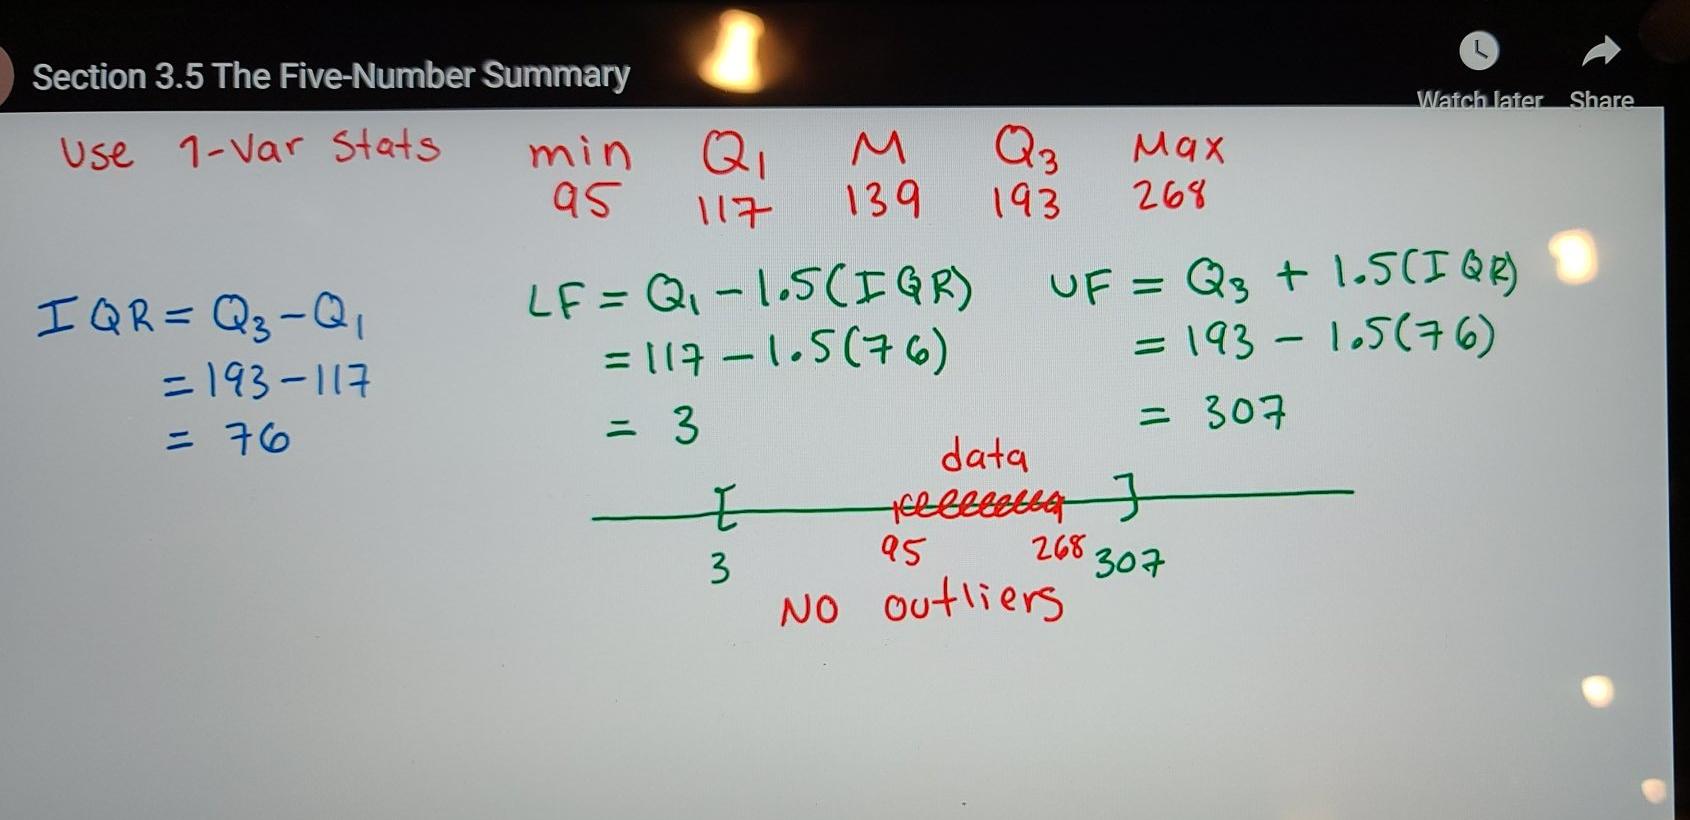 Section 3.5 The Five-Number Summary
Watch later Share
Use 1-Var Stats min Q₁ M Q₃ Max
95 117 139 193 268
IQR = Q₃ - Q₁
= 193 - 117
= 76
LF = Q₁ - 1.5(IQR)
= 117 - 1.5(76)
= 3
UF = Q₃ + 1.5(IQR)
= 193 - 1.5(76)
= 307
data
[ ]
3 95 268 307
NO outliers